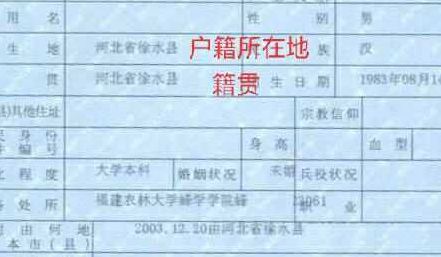 用 名 性 别 男
生 地 河北省徐水县 户籍所在地 族 汉
贯 河北省徐水县 籍贯 生日期 1983年08月14
县)其他住址 宗教信仰
身份 身高 血型
编号
化程度 大学本科 婚姻状况 未婚 兵役状况
务处所 福建农林大学蜂学学院蜂 职业
由何地 2003.12.20由河北省徐水县
本市(县)